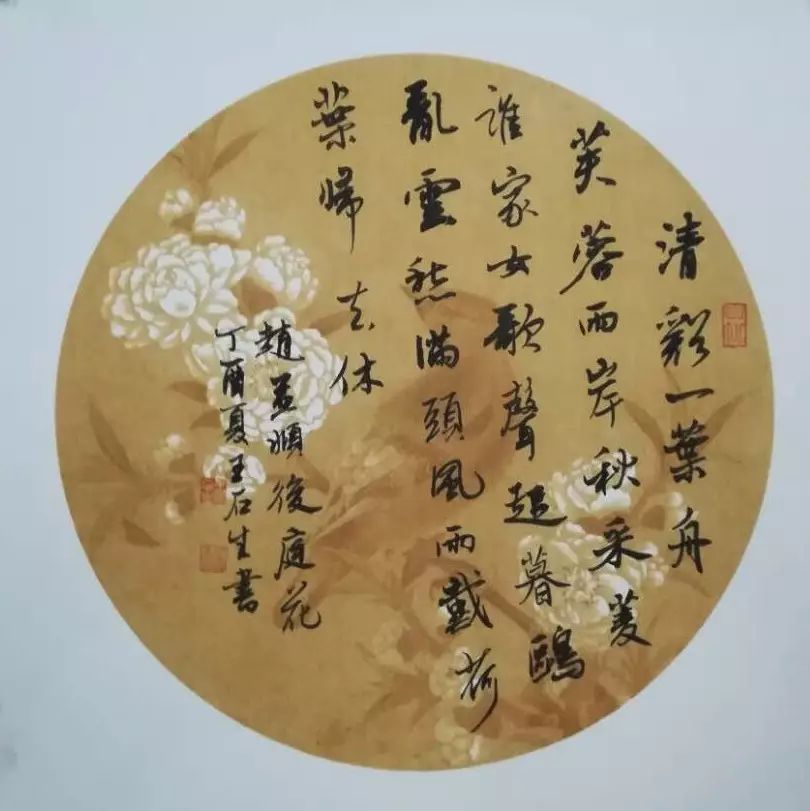 清谿一葉舟
芙蓉兩岸秋采菱
誰家女歌聲起暮鷗
亂雲愁滿頭風雨戴荷
葉歸去休
趙孟頫後庭花
丁酉夏王石生書